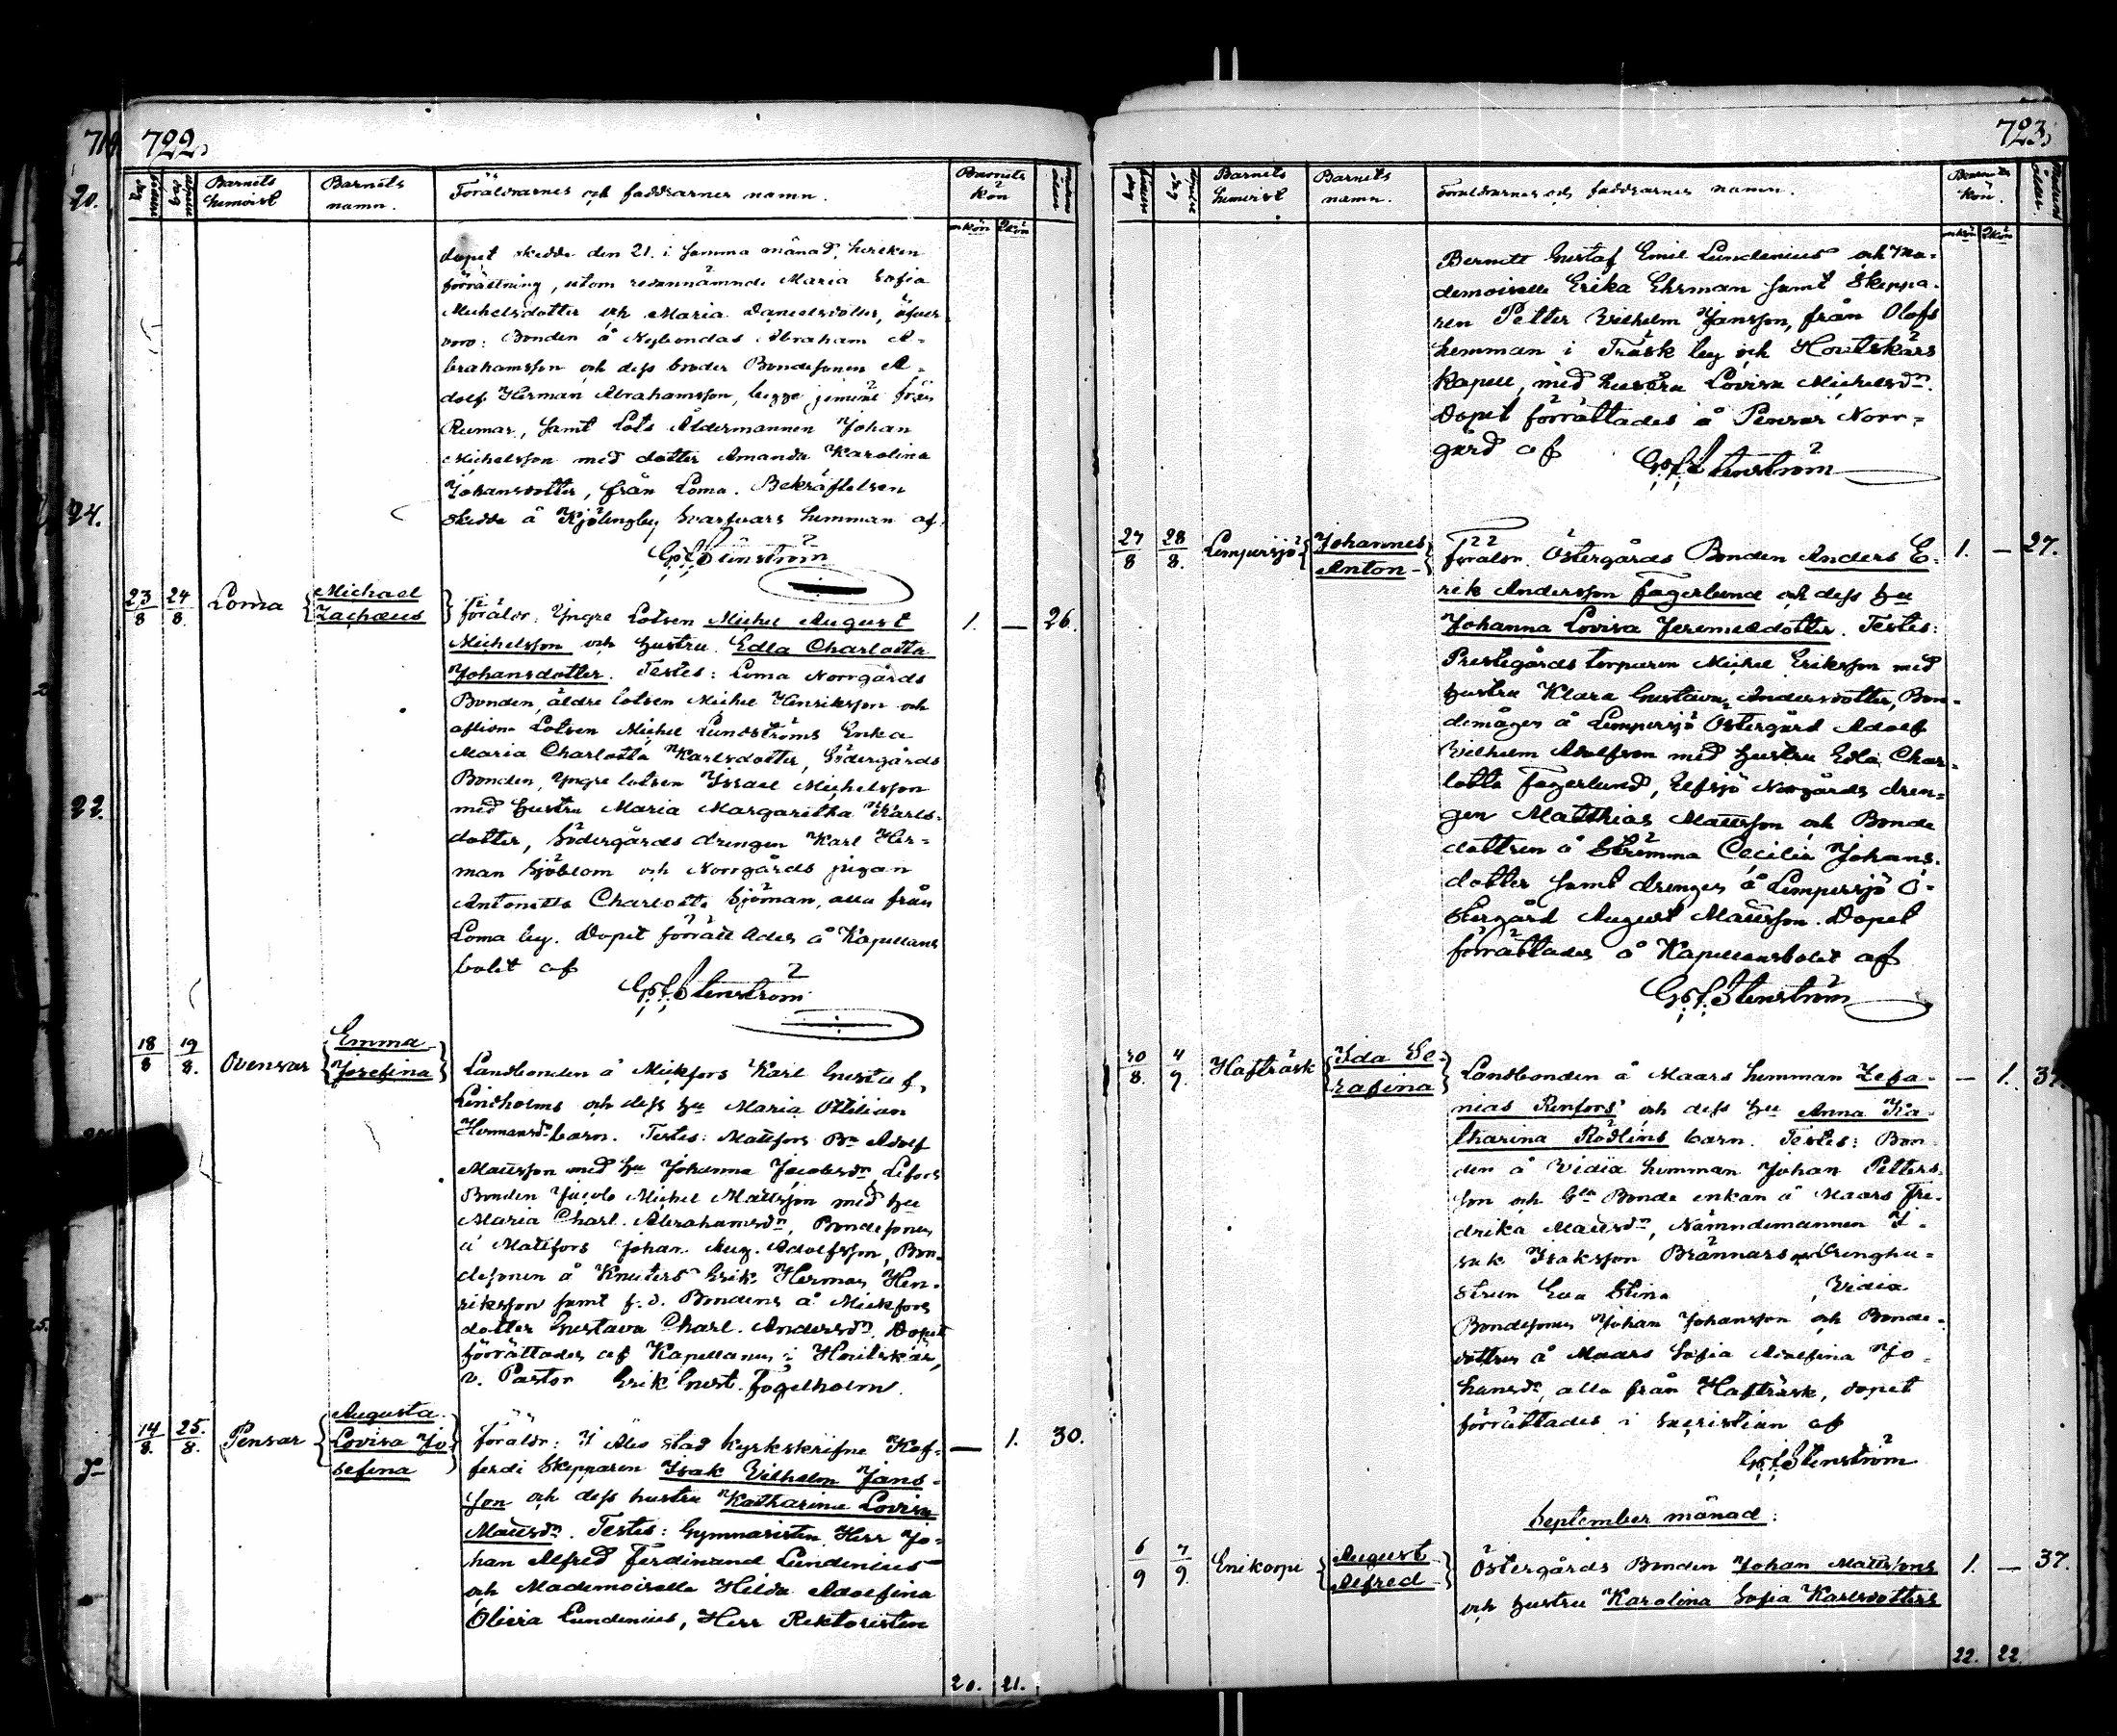 722.
Barnets hemvist
Barnets namn.
Föräldrarnes och faddrarnes namn.
Barnets kön
mkön qkön
dopet skedde den 21. i samma månad, hvilken
förrättning, utom redannämnde Maria Sofia
Michelsdotter och Maria Danielsdotter, öfver-
voro: Bonden å Nybondas Abraham A-
brahamsson och dess broder Bondesonen A-
dolf Herman Abrahamsson, begge från
Rumar, samt Lots Åldermannen Johan
Michelsson med dotter Amanda Karolina
Johansdotter, från Loma. Bekräftelsen
skedde å Kjölingby Svarfvars hemman af
G. f. Stenström
23/8 24/8. Loma
Michael
Zachæus
Föräldr: Yngre Lotsen Michel August
Michelsson och hustru Edla Charlotta
Johansdotter. Testes: Loma Norrgårds
Bonden, äldre lotsen Michel Henriksson och
aflidne Lotsen Michel Lundströms Enka
Maria Charlotta Karlsdotter, Södergårds
Bonden, Yngre lotsen Israel Michelsson
med hustru Maria Margaretha Karls-
dotter, Södergårds drengen Karl Her-
man Sjöblom och Norrgårds pigan
Antonetta Charlotta Sjöman, alla från
Loma by. Dopet förrättades å Kapellans
bolet af
G. f. Stenström
1. — 26.
18/8 19/8. Ovensar
Emma
Josefina
Landbonden å Mickfors Karl Gustaf
Lindholms och dess hu Maria Ottilian
Hermansdr barn. Testes: Mattfors Bn Adolf
Mattsson med hu Johanna Jacobsdr, Lifors
Bonden Jacob Michel Mattsson med hu
Maria Charl. Abrahamsdr, Bondesonen
å Mattfors Johan Aug. Adolfsson, Bon-
desonen å Knuters Erik Herman Hen-
riksson samt f. d. Bondens å Mickfors
dotter Gustava Charl. Andersdr. Dopet
förrättades af Kapellanen i Houtskär,
v. Pastor Erik Gust. Fogelholm.
14/8. 25./8. Pensar
Augusta
Lovisa Jo-
sefina
Föräldr: I Åbo stad kyrkskrifne Kof-
ferdi Skepparen Isak Wilhelm Jans-
son och dess hustru Katharina Lovisa
Mattsdr. Testes: Gymnasisten Herr Jo-
han Alfred Ferdinand Lundenius
och Mademoiselle Hilda Adolfina
Olivia Lundenius, Herr Rektoristen
— 1. 30.
20. 21.
723.
Barnets hemvist
Barnets namn.
Föräldrarnes och faddrarnes namn.
Barnets kön.
mkön qkön
Berndt Gustaf Emil Lundenius och Ma-
demoiselle Erika Ehrman samt Skeppa-
ren Petter Wilhelm Jansson, från Olofs
hemman i Träsk by och Houtskärs
Kapell, med hustru Lovisa Michelsdr.
Dopet förrättades å Pensar Norr-
gård af
G. f. Stenström
27/8 28/8. Lempersjö
Johannes
Anton
Föräldr. Östergårds Bonden Anders E-
rik Andersson Fagerlund och dess hu
Johanna Lovisa Jeremiedotter. Testes:
Prestegårds torparen Michel Eriksson med
hustru Klara Gustava Andersdotter, Bon-
demågen å Lempersjö Östergård Adolf
Wilhelm Adolfsson med hustru Edla Char-
lotta Fagerlund, Elfsjö Norgårds dren-
gen Matthias Mattsson och Bonde
dottren å Strömma Cecilia Johans-
dotter samt drengen å Lempersjö Ö-
stergård August Mattsson. Dopet
förrättades å Kapellansbolet af
G. f. Stenström
1. — 27.
30/8. 4/9. Hafträsk
Ida Se-
rafina
Landbonden å Maars hemman Zefa-
nias Renfors och dess hu Anna Ka-
tharina Rödlins barn. Testes: Bon-
den å Vidia hemman Johan Petters-
son och Gla Bonde enkan å Maars Fre-
drika Mattsdr, Nämndemannen I-
sak Isaksson Brännars och Drenghu-
strun Eva Stina , Vidia
Bondesonen Johan Johansson och Bonde-
dottren å Maars Sofia Adolfina Jo-
hansdr, alla från Hafträsk, dopet
förrättades i sacristian af
G. f. Stenström
— 1. 37.
September månad:
6/9 7/9. Enikorpi
August
Alfred
Östergårds Bonden Johan Mattssons
och hustru Karolina Sofia Karlsdotters
1. — 37.
22. 22.